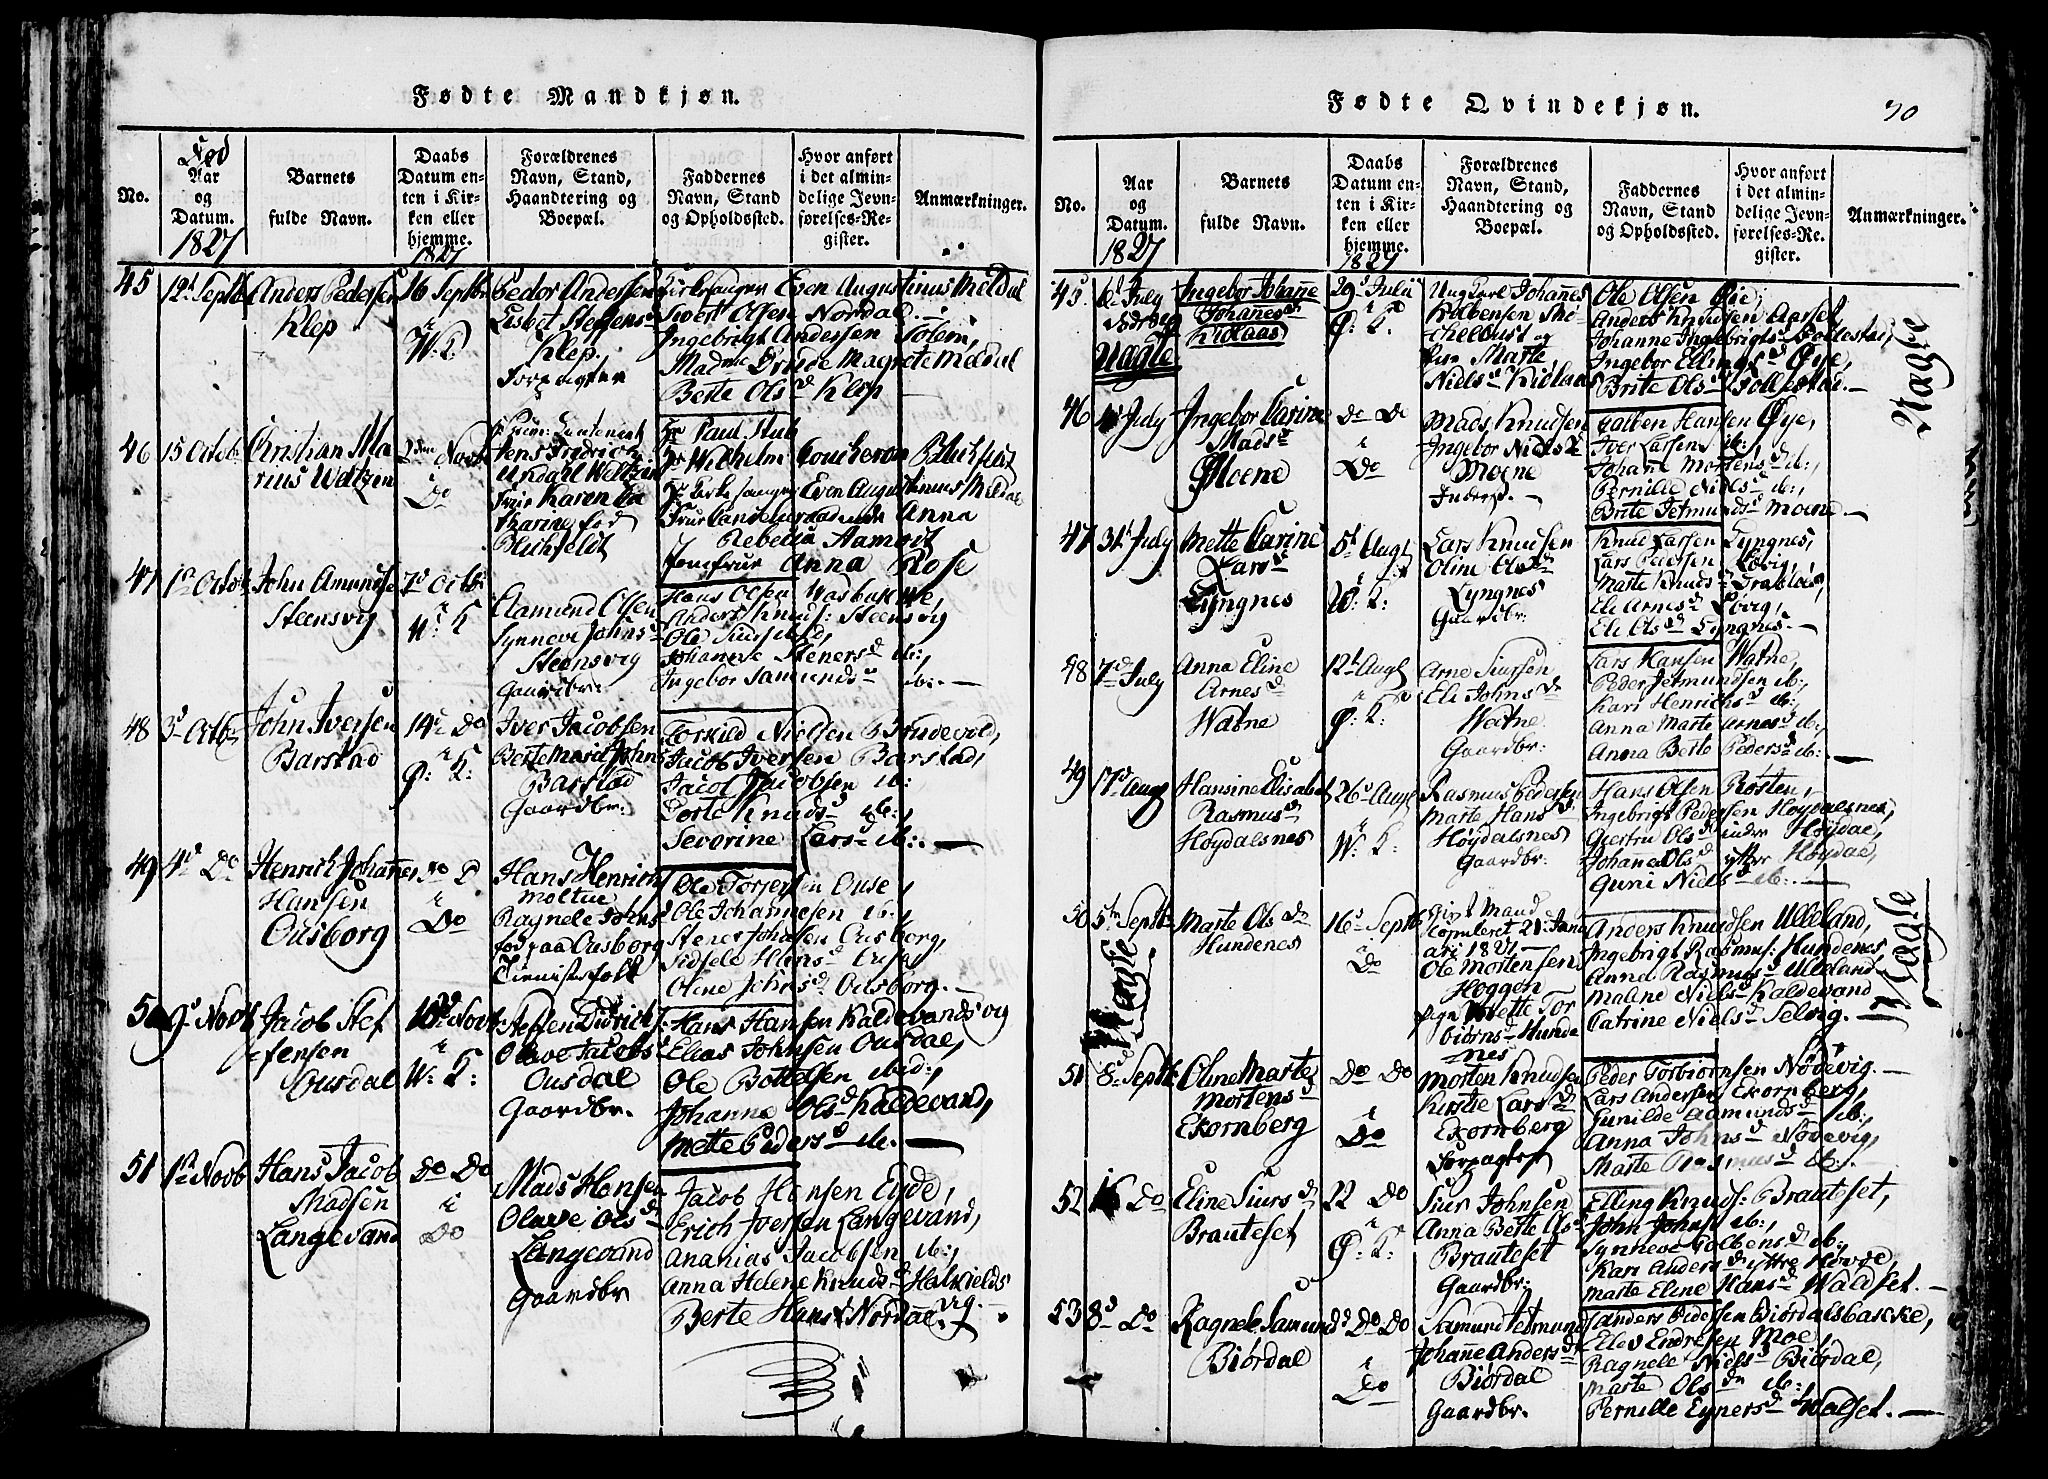 Fødte Mandkjøn.
No.
Fød
Aar
og
Datum.
1827
Barnets
fulde Navn.
Daabs
Datum en-
ten i Kir-
ken eller
hjemme.
1827
Forældrenes
Navn, Stand,
Haandtering og
Boepæl.
Faddernes
Navn, Stand
og Opholdssted.
Hvor anført
i det almin-
delige Jevn-
førelses-Re-
gister.
Anmærkninger.
45
12t Septb
Anders Pedersen
Klep
16 Septbr
i
W: K:
Peder Andersen
Lisbet Steffens
Klep.
Forpagter
Kirkesanger Even Augustinus Meldal
Sivert Olsen Nordal
Ingebrigt Andersen Solem,
Madme Drude Magrete Meldal
Berte Olsd Klep
46
15 Octob
Christian Ma
rius Weltzin
2den Novb
i
Do
Jens Fredrich
Undahl Weltzin
Frue Karen Ca
tharine fød
Blichfeldt
Hr Paul Stub
Hr Wilhelm Coucheron Blichfeldt
Hr Kirkesanger Even Augustinus Meldal
Anna
Rebecca Aamodt
Jomfrue Anna Rose
47
1te Octob
John Amundsen
Steensvig
7d Octb:
i
W: K
Aamund Olsen
Synneve Johnsd
Steensvig
Gaardbr:
Hans Olsen
Anders Knuds: Steensvig
Ole Siursen ibid,
Johanne Stenersd ib:,
Ingebor Samundsd ib:. —
48
3d Octb
John Iversen
Barstad
14de Do
i
Ø: K:
Iver Jacobsen
Berte Maria Johns
Barstad
Gaardbr:
Torkild Nielsen Brudevold,
Jacob Iversen Barstad,
Jacob Jacobsen ib:
Dorte Knudsd ib:,
Severine Larsd ib:. —
49
4d Do
Henrich Johannes
Hansen
Ousborg
Do D
i
Do
Hans Henrich
Moltue
Ragnele Johnsd
fød paa Ousborg
Tienistefolk
Ole Torjersen Ouse,
Ole Johannesen ib:,
Stener Johnsen Ousborg,
Sidsele Hansd
Oline Johnsd Ousborg. —
50
9d Novb
Jacob Stef
fensen
Ousdal
18d Novb
i
W: K:
Steffen Didrichs:
Olave Jacobsd
Ousdal
Gaardbr.
Hans Hansen Kaldevandsvig
Elias Johnsen Ousdal,
Ole Bottelsen ibid:,
Johanne Olsd Kaldevand,
Mette Pedersd ib. —
51
1te Novb
Hans Jacob
Madsen
Langevand
Do Do
i
Do
Mads Hansen
Olave Olsd
Langevand
Gaardbr
Jacob Hansen Eyde,
Erich Iversen Langevand,
Ananias Jacobsen ib:,
Anna Helene Knudsd Halkields
vig.
Berte Hansd Nordal.
Fødte Qvindekjøn.
30
No.
Aar
og
Datum.
1827
Barnets
fulde Navn.
Daabs
Datum en-
ten i Kir-
ken eller
hjemme.
1827
Forældrenes
Navn, Stand,
Haandtering og
Boepæl.
Faddernes
Navn, Stand
og Opholdssted.
Hvor anført
i det almin-
delige Jevn-
førelses-Re
gister.
Anmærkninger.
45.
July
Uægte
Ingebor Johanne
Johanesd
Kidlaas
29d Julii
i
Ø: K:
Ungkarl Johannes
Rabensen Mo-
chelbust og
Pige Marte
Nielsd Kidlaas
Ole Olsen Øie,
Anders Knudsen Aaset,
Johanne Ingebrigtsd Follestad,
Ingebor Ellingsd Øye,
Brite Olsd Follestad. —
Uægte
46
July
Ingebor Carine
Madsd
Moene
Do Do
i
Do
Mads Knudsen
Ingebor Nielsd
Moene
Inderst. —
Colben Hansen Øye,
Iver Larsen ib:,
Johane Mortensd ib:,
Pernille Nielsd ib:,
Brite Jetmundsd Moene. —
47
31t July
Mette Carine
Larsd
Lyngnes
5t Augt
i
W: K:
Lars Knudsen
Oline Olsd
Lyngnes
Gaardbr:
Knud Larsen Lyngnes,
Lars Pedersen Løvig,
Marte Knudsd
Eli Arnesd Løvig,
Eli Olsd Lyngnes. —
48
7d July
Anna Eline
Arnesd
Watne
12t Augt
i
Ø: K:
Arne Siursen
Eli Johnsd
Watne
Gaardbr:
Lars Hansen Watne,
Peder Jetmundsen ib:,
Kari Henrichsd ib:,
Anna Marte Arnesd ib:,
Anna Berte Pedersd ib: —
49
17d Augt
Hansine Elisabet
Rasmusd
Høydalsnes
26d Augt
i
W: K:
Rasmus Pedersen
Marte Hansd
Høydalsnes
Gaardbr:
Hans Olsen Rosten,
Ingebrigt Pedersen Høydalsnes,
Giertru Olsd indre Høydal,
Johane Olsd ytter Høydal,
Guni Nielsd ib:. —
50
5te Septb
Uægte
Marte Olsd
Hundenes
16d Septb
i
Do
Gift Mand
copuleret 21: Janu
ari 1827 —
Ole Mortensen
Hoggen
Pige Mette Tor
biørnsd Hunde
nes
Anders Knudsen Ulleland,
Ingebrigt Rasmus: Hundenes
Anna Rasmusd Ulleland
Maline Nielsd Kaldevand
Catrine Nielsd Selvig. —
Uægte
51
8de Septb
Oline Marte
Mortensd
Ekornberg
Do Do
i
Do
Morten Knudsen
Kirstie Larsd
Ekornberg
Forpagter
Peder Torbiornsen Nødevig.
Lars Andersen Ekornberg,
Gunilde Aamundsd ib:,
Anna Johnsd Nødevig,
Marte Rasmusd ib:. —
52
16 Do
Eline Siursd
Brauteset
22 Do
i
Ø: K:
Siur Johnsen
Anna Berte Olsd
Brauteset
Gaardbr:
Elling Knuds: Brauteset,
John Johns: ib:,
Synneve Colbensd ib:,
Kari Andersd yttre Hovde,
Marte Eline Hansd Waldset. —
53
8d Do
Ragnele Samundsd
Biørdal
Do Do
i
Do
Samund Jetmunds
Johane Andersd
Biørdal
Gaardbr.
Anders Pedersen Biørdalsbakke,
Elev Endresen Moe,
Ragnele Nielsd Biørdal,
Marte Olsd ib:,
Pernille Eynersd Walset. —